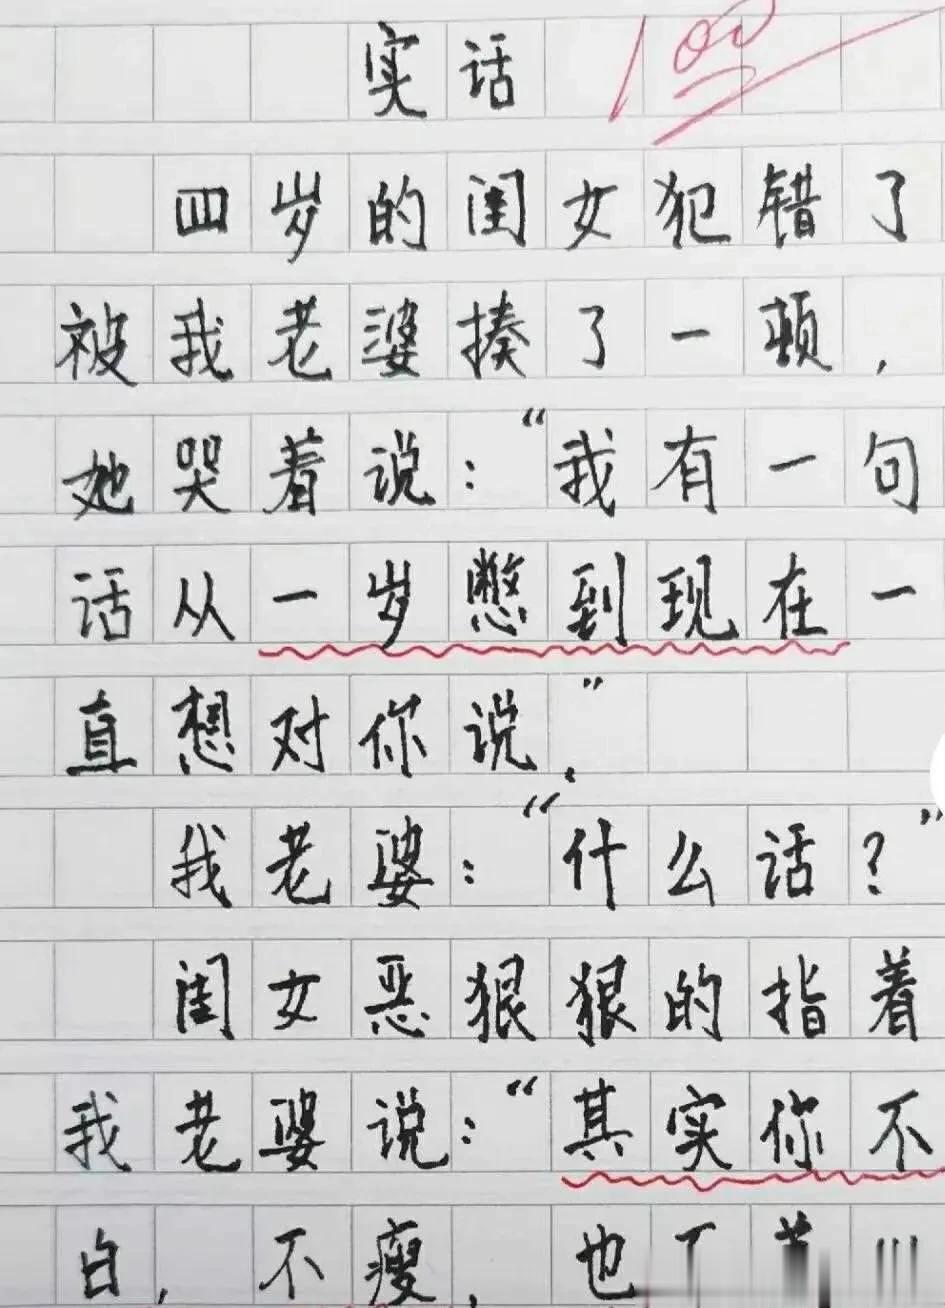 实话
100
四岁的闺女犯错了
被我老婆揍了一顿，
她哭着说：“我有一句
话从一岁憋到现在一
直想对你说。”
我老婆：“什么话？”
闺女恶狠狠的指着
我老婆说：“其实你不
白，不瘦，也